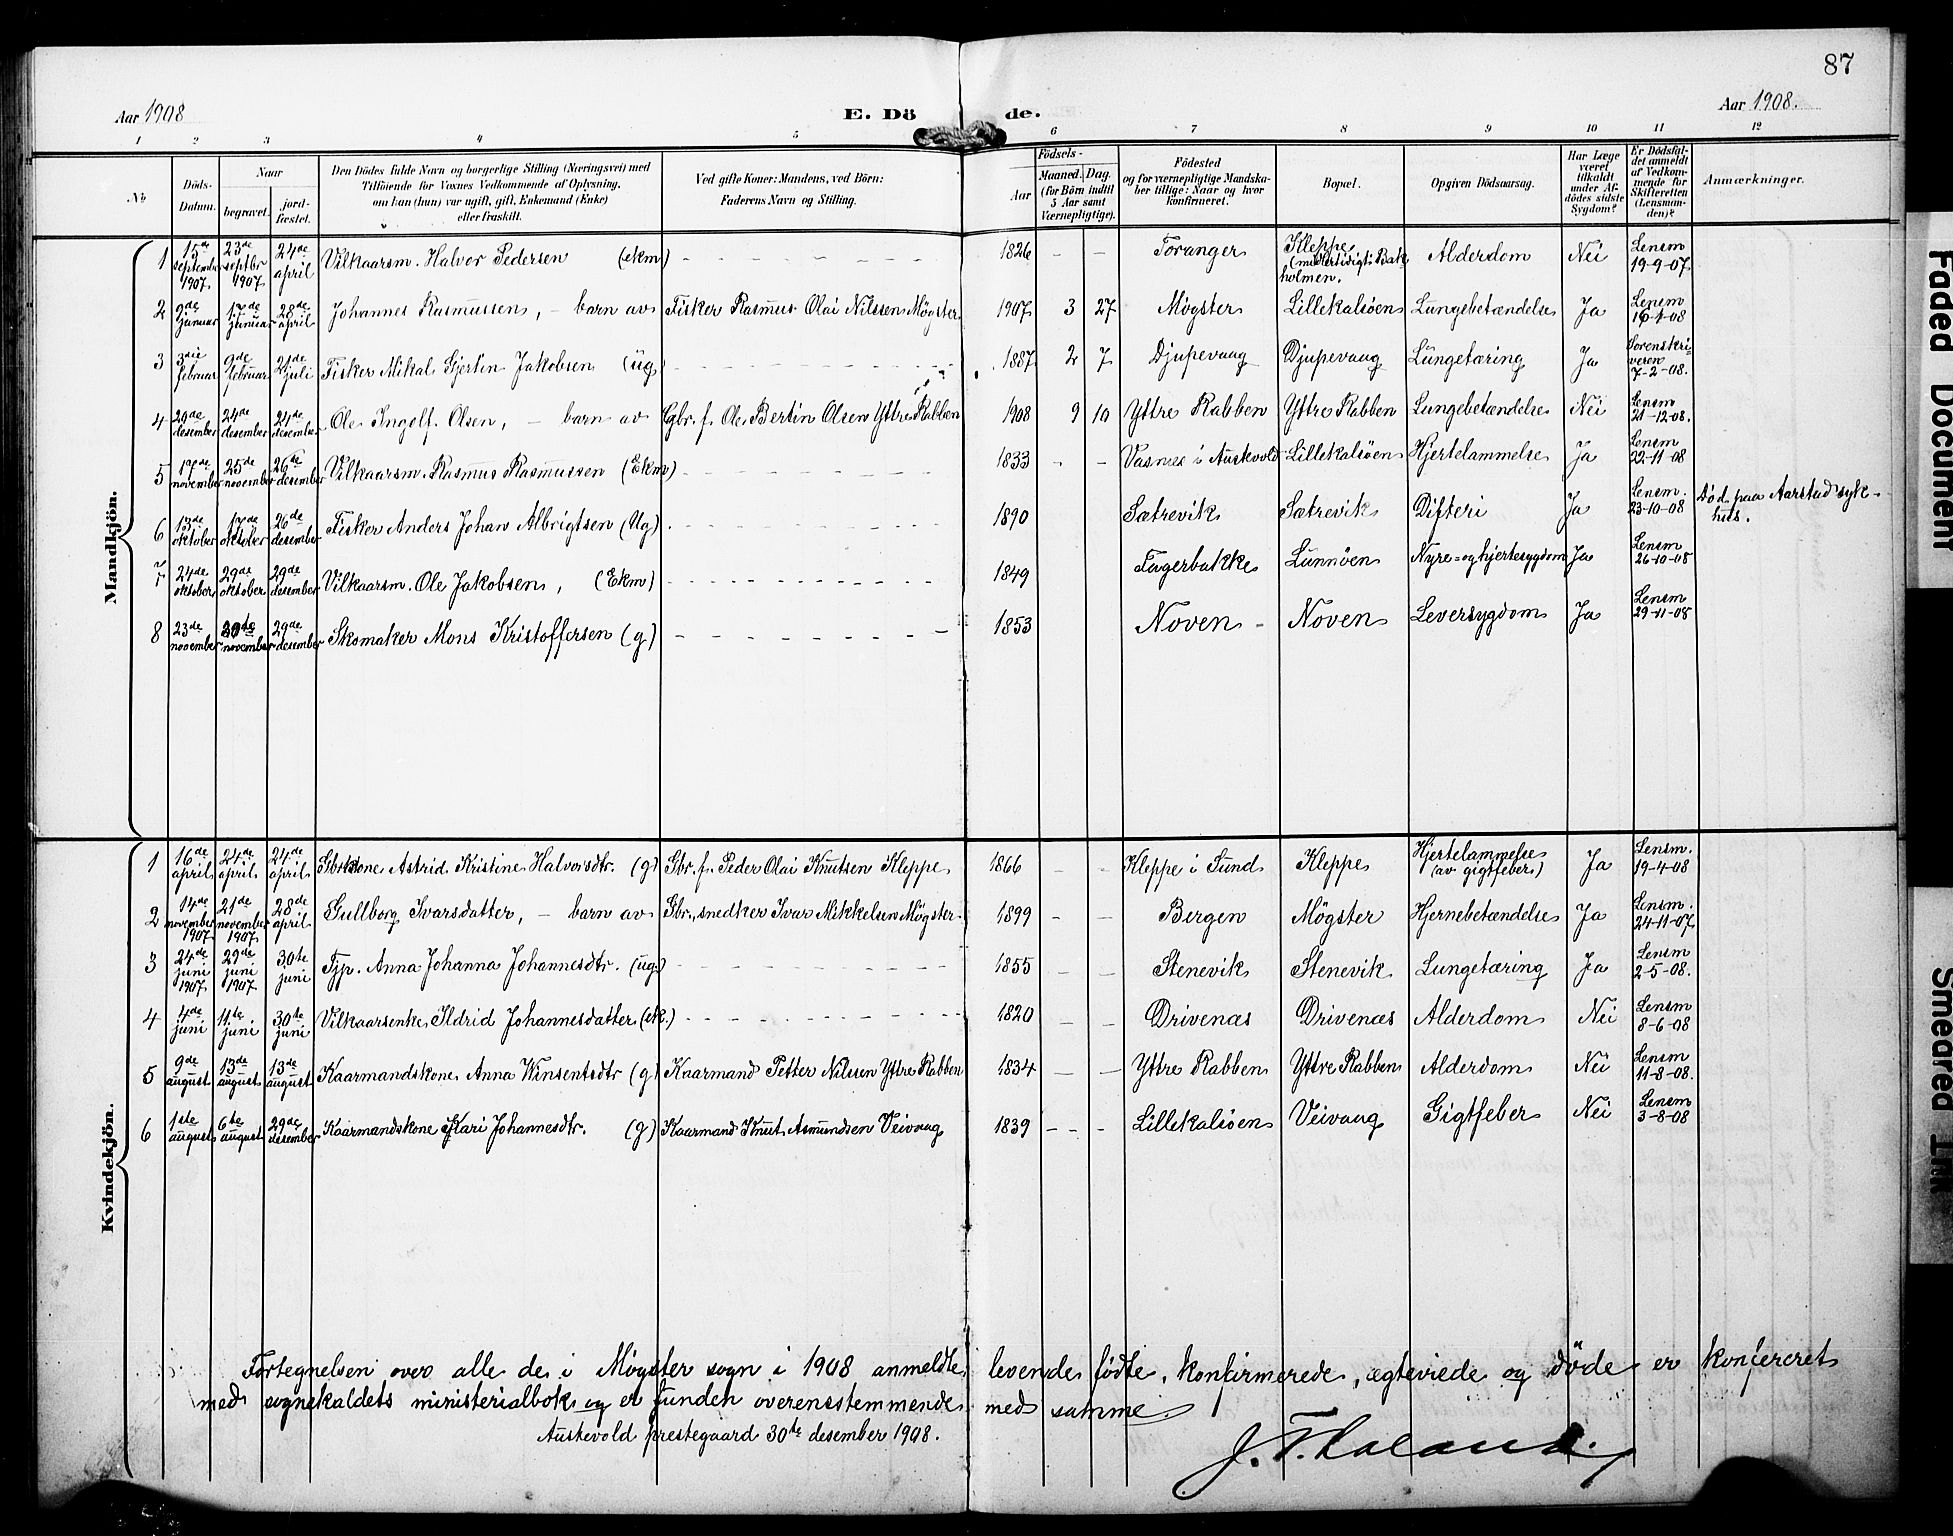 87
Aar 1908
E. Dö de.
Aar 1908.
1 2 3 4 5 6 7 8 9 10 11 12
No
Döds-Datum.
Naar
begravet.
jord-fæstet.
Den Dödes fulde Navn og borgerlige Stilling (Næringsvei) med
Tilföiende for Voxnes Vedkommende af Oplysning,
om han (hun) var ugift, gift, Enkemand (Enke)
eller fraskilt.
Ved gifte Koner: Mandens, ved Börn:
Faderens Navn og Stilling.
Födsels-
Aar
Maaned. Dag.
(for Börn indtil
5 Aar samt
Værnepligtige).
Födested
og for værnepligtige Mandska-
ber tillige: Naar og hvor
konfirmeret.
Bopæl.
Opgiven Dödsaarsag.
Har Læge
været
tilkaldt
under Af-
dödes sidste
Sygdom?
Er Dödsfal-
det anmeldt
af Vedkom-
mende for
Skifteretten
(Lensman-
den)?
Anmærkninger.
Mandkjön.
1 15de september 1907 23de septbr 1907 24de april Vilkaarsm. Halvor Pedersen (ekm) - - - 1826 - - Foranger Kleppe (midlertidigt: Bakholmen. Alderdom Nei Lensm 19-9-07.
2 9de januar 17de januar 28de april Johannes Rasmussen, - barn av Fisker Rasmus Olai Nilsen Møgster 1907 3 27 Møgster Lillekalsöen Lungebetændelse Ja Lensm 16-1-08
3 3die februar 9de februar 21de juli Fisker Mikal Gjertin Jakobsen (ug) - - - 1887 2 7 Djupevaag Djupevaag Lungetæring Ja Sorenskriveren 7-2-08.
4 20de desember 24de desember 24de desember Ole Ingolf Olsen, - barn av Gbr. f. Ole Bertin Olsen Yttre Rabben 1908 9 10 Yttre Rabben Yttre Rabben Lungebetændelse Nei Lensm 21-12-08.
5 17de november 25de november 26de desember Vilkaarsm. Rasmus Rasmussen (Ekm) - - - 1833 - - Vasnes i Austevold Lillekalsöen Hjertelammelse Ja Lensm 22-11-08
6 13de oktober 17de oktober 26de desember Fisker Anders Johan Albrigtsen (Ug) - - - 1890 Sætrevik Sætrevik Difteri Ja Lensm. 23-10-08 Död paa Aarstad sykhus.
7 24de oktober 29de oktober 29de desember Vilkaarsm. Ole Jakobsen, (Ekm) - - - 1849 Fagerbakke Lunnöen Nyre- og hjertesygdom Ja Lensm 26-10-08
8 23de november 30de november 29de desember Skomaker Mons Kristoffersen (g) - - - 1853 Noven - Noven Leversygdom Ja Lensm 29-11-08
Kvindekjön.
1 16de april 24de april 24de april Gbrskone Astrid Kristine Halvorsdtr. (g) Gbr. f. Peder Olai Knutsen Kleppe 1866 - - Kleppe i Sund Kleppe Hjertelammelse (av gigtfeber) Ja Lensm. 19-4-08
2 14de november 1907 21de november 1907 28de april Gullborg Ivarsdatter, - barn av Gbr., snedker Ivar Mikkelsen Møgster 1899 - - Bergen Møgster Hjernebetændelse Ja Lensm. 24-11-07
3 24de juni 1907 29de juni 1907 30te juni Fjp. Anna Johanna Johannesdtr. (ug.) - - - 1855 - - Stenevik Stenevik Lungetæring Ja Lensm 2-5-08.
4 4de juni 11te juni 30te juni Vilkaarsenke Ildrid Johannesdatter (ek.) - - - 1820 - - Drivenæs Drivenæs Alderdom Nei Lensm 8-6-08
5 9de august 13de august 13de august Kaarmandskone Anna Winsentsdtr (g) Kaarmand Petter Nilssen Yttre Rabben 1834 - - Yttre Rabben Yttre Rabben Alderdom Nei Lensm 11-8-08.
6 1ste august 6te august 29de desember Kaarmandskone Kari Johannesdtr. (g) Kaarmand Knut Asmundsen Veivaag 1839 - - - Lillekalsöen Veivaag Gigtfeber Nei Lensm 3-8-08
Fortegnelsen over alle de i Møgster sogn i 1908 anmeldte levende födte, konfirmerede, ægteviede og döde er konfereret
med sognekaldets ministerialbok og er funden overensstemmende med samme.
Austevold prestegaard 30te desember 1908.
Faded Document
Smeared Ink